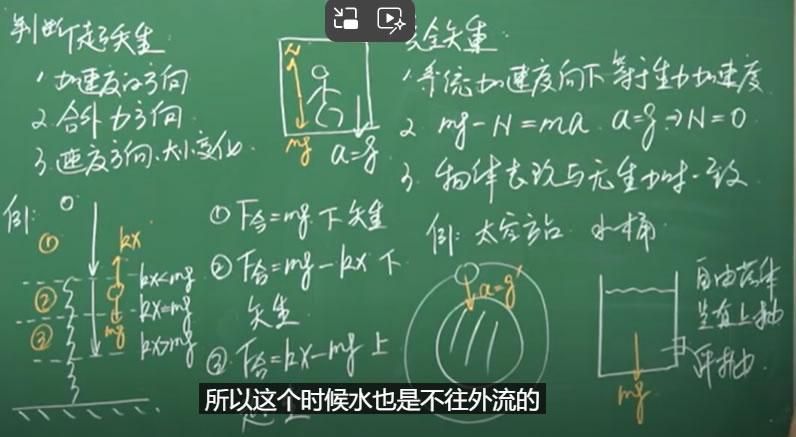 判断超失重:
1. 加速度的方向
2. 合外力方向
3. 速度方向、大小变化
例:
①
②
③
kx
mg
kx<mg
kx=mg
kx>mg
N
mg
a=g
① F合=mg 下 失重
② F合=mg-kx 下
失重
③ F合=kx-mg 上
完全失重:
1. 系统加速度向下 等于重力加速度
2. mg-N=ma a=g⇒N=0
3. 物体表现与无重力时一致
例: 太空站 水桶
a=g'
mg
自由落体
竖直上抛
平抛
所以这个时候水也是不往外流的